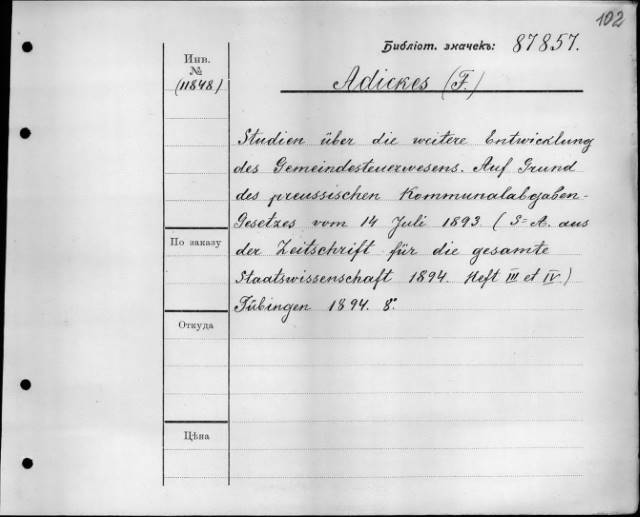 102
Библіот. значекъ: 87857.
Инв.
№
(11848.)
Adickes (F.)
Studien über die weitere Entwicklung
des Gemeindesteuerwesens. Auf Grund
des preussischen Kommunalabgaben-
Gesetzes vom 14 Juli 1893. (S=A. aus
der Zeitschrift für die gesamte
Staatswissenschaft 1894. Heft III et IV.)
Tübingen 1894. 8º.
По заказу
Откуда
Цѣна